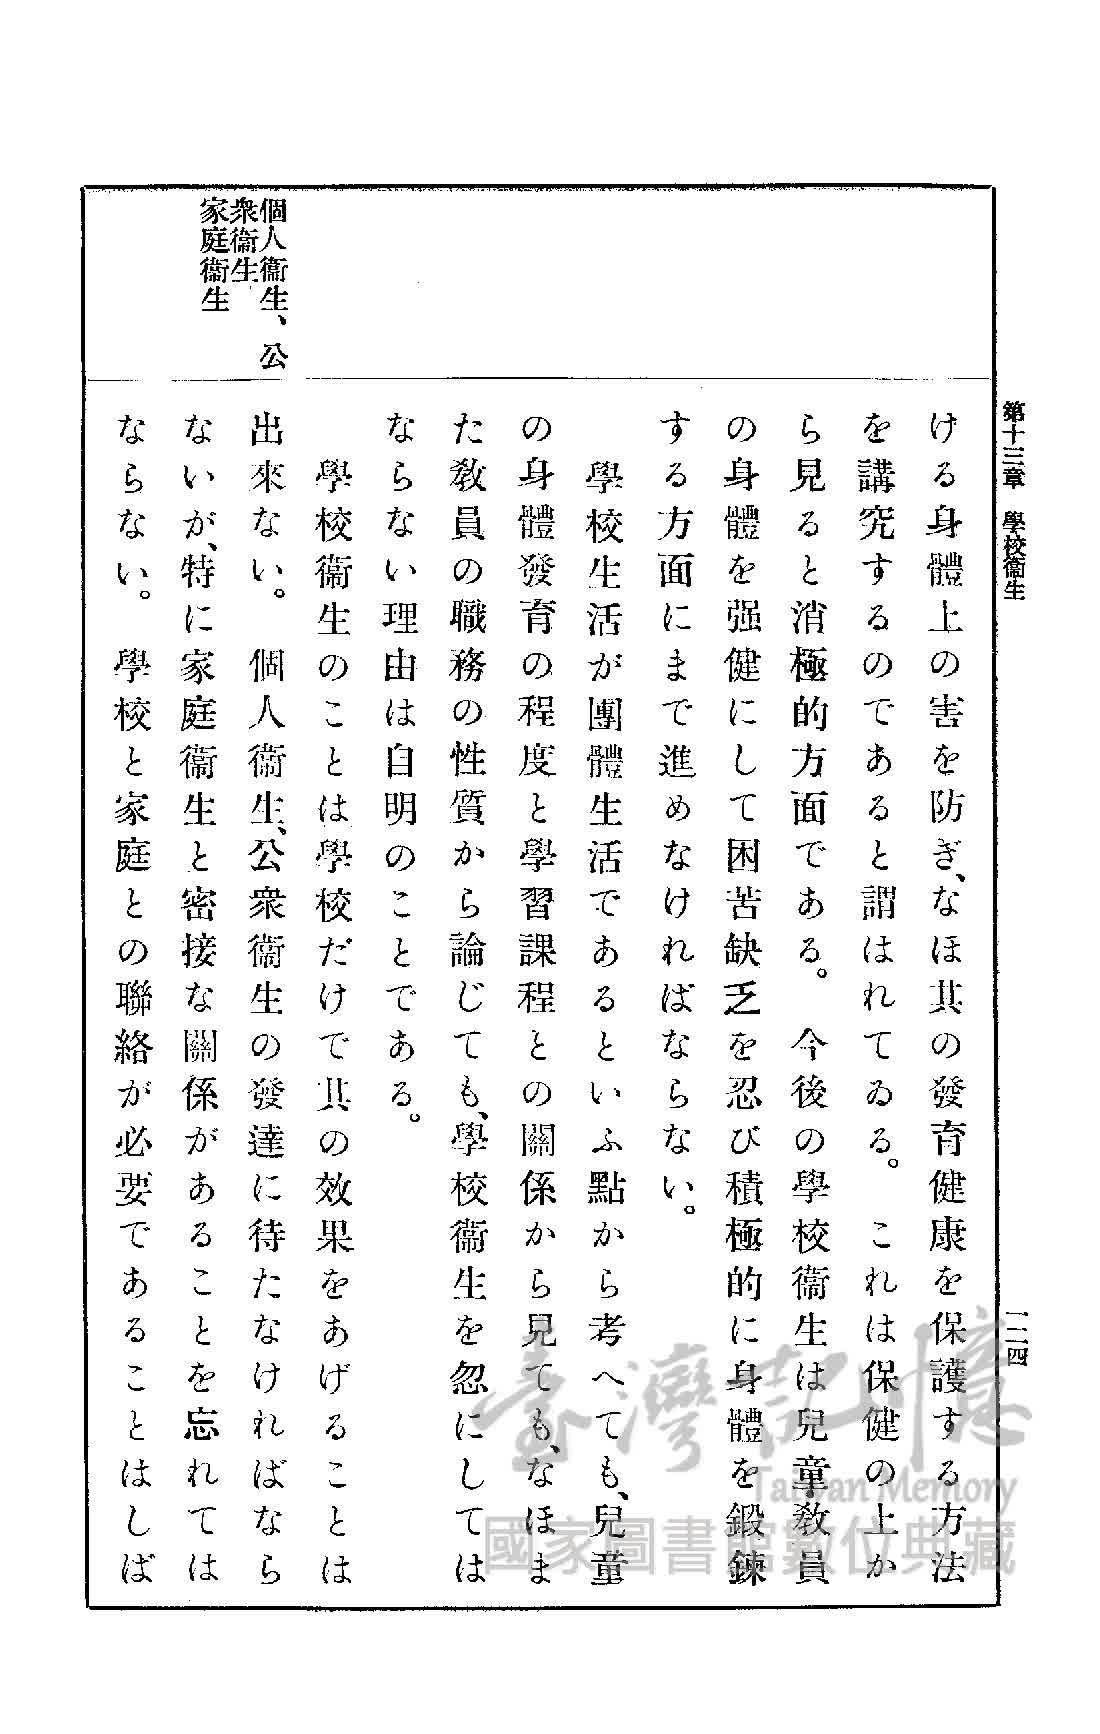 第十三章 學校衞生
一二四
ける身體上の害を防ぎ、なほ其の發育健康を保護する方法
を講究するのであると謂はれてゐる。 これは保健の上か
ら見ると消極的方面である。 今後の學校衞生は兒童敎員
の身體を强健にして困苦缺乏を忍び積極的に身體を鍛鍊
する方面にまで進めなければならない。
學校生活が團體生活であるといふ點から考へても、兒童
の身體發育の程度と學習課程との關係から見ても、なほま
た敎員の職務の性質から論じても、學校衞生を忽にしては
ならない理由は自明のことである。
學校衞生のことは學校だけで其の效果をあげることは
出來ない。 個人衞生、公衆衞生の發達に待たなければなら
ないが、特に家庭衞生と密接な關係があることを忘れては
ならない。 學校と家庭との聯絡が必要であることはしば
個人衞生、公
衆衞生
家庭衞生
臺灣記憶
Taiwan Memory
國家圖書館數位典藏